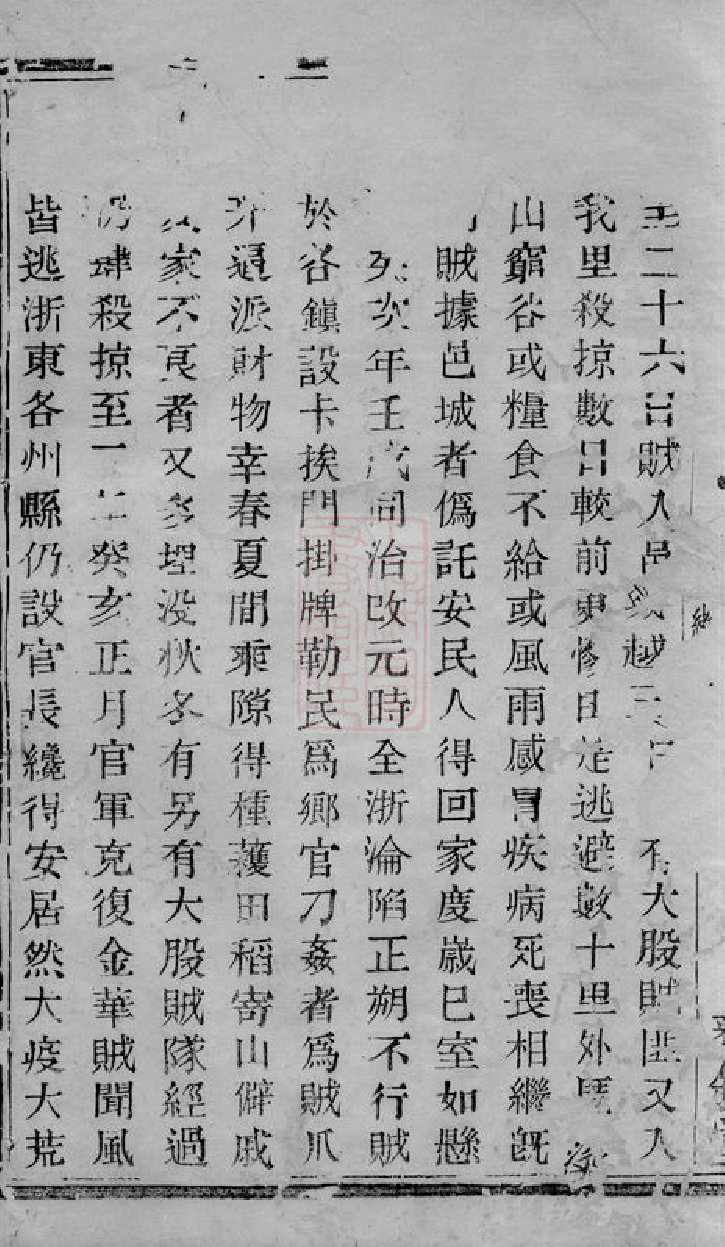 至二十六日賊入邑越三大股賊匪又入
我里殺掠數日較前更慘由是逃避數十里外深
山窮谷或糧食不給或風雨感冒疾病死喪相繼既
賊據邑城者僞託安民人得回家度歲已室如懸
次年壬戌同治改元時全浙淪陷正朔不行賊
於各鎮設卡挨門掛牌勒民爲鄉官刀姦者爲賊爪
牙逼派財物幸春夏間乘隙得種穫田稻寄山僻戚
家不良者又多埋没秋冬有另有大股賊隊經過
仍肆殺掠至二年癸亥正月官軍克復金華賊聞風
皆逃浙東各州縣仍設官長纔得安居然大疫大荒